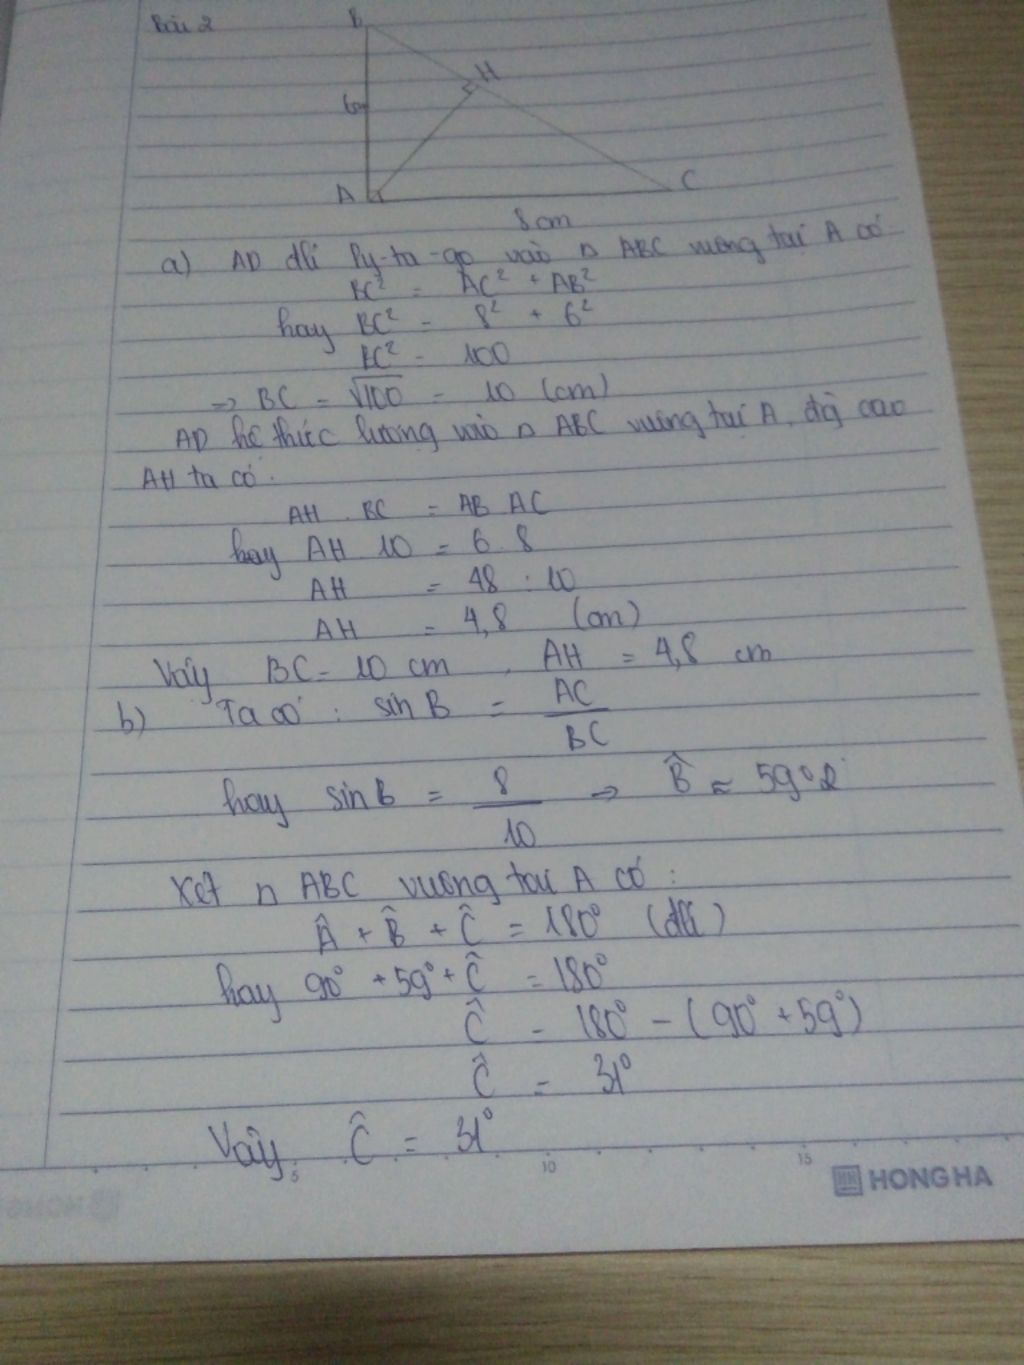 Bài 2
B
H
6cm
A
C
8cm
a) AD đlí Py-ta-go vào Δ ABC vuông tại A có
BC² = AC² + AB²
hay BC² = 8² + 6²
BC² = 100
⇒ BC = √100 = 10 (cm)
AD hệ thức lượng vào Δ ABC vuông tại A, đg cao
AH ta có:
AH . BC = AB . AC
hay AH . 10 = 6 . 8
AH = 48 : 10
AH = 4,8 (cm)
Vậy BC = 10 cm , AH = 4,8 cm
b) Ta có : sin B = AC / BC
hay sin B = 8 / 10 ⇒ B̂ ≈ 59°2'
Xét Δ ABC vuông tại A có :
Â + B̂ + Ĉ = 180° (đlí)
hay 90° + 59° + Ĉ = 180°
Ĉ = 180° - (90° + 59°)
Ĉ = 31°
Vậy Ĉ = 31°
5 10 15
HONG HA